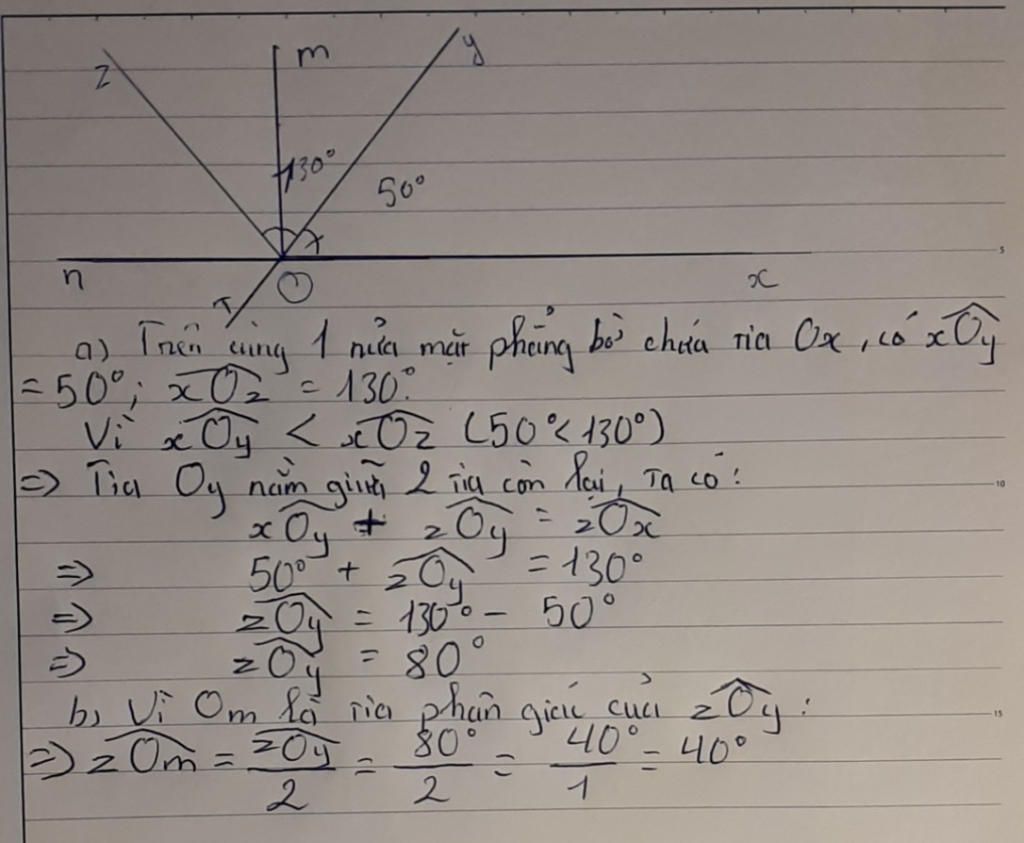 z m y
130°
50°
n O x
T
a) Trên cùng 1 nửa mặt phẳng bờ chứa tia Ox, có xÔy
= 50°; xÔz = 130°.
Vì xÔy < xÔz (50° < 130°)
=> Tia Oy nằm giữa 2 tia còn lại, Ta có:
xÔy + zÔy = zÔx
=> 50° + zÔy = 130°
=> zÔy = 130° - 50°
=> zÔy = 80°
b, Vì Om là tia phân giác của zÔy:
=> zÔm = zÔy/2 = 80°/2 = 40°/1 = 40°
5
10
15